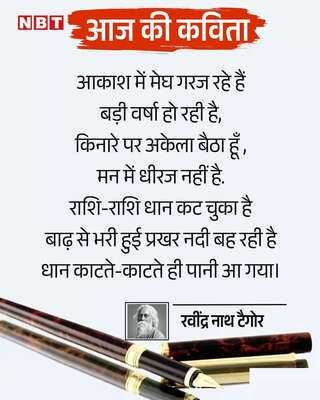 NBT
आज की कविता
आकाश में मेघ गरज रहे हैं
बड़ी वर्षा हो रही है,
किनारे पर अकेला बैठा हूँ ,
मन में धीरज नहीं है.
राशि-राशि धान कट चुका है
बाढ़ से भरी हुई प्रखर नदी बह रही है
धान काटते-काटते ही पानी आ गया।
रवींद्र नाथ टैगोर